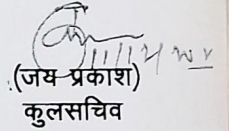 (जय प्रकाश)
कुलसचिव